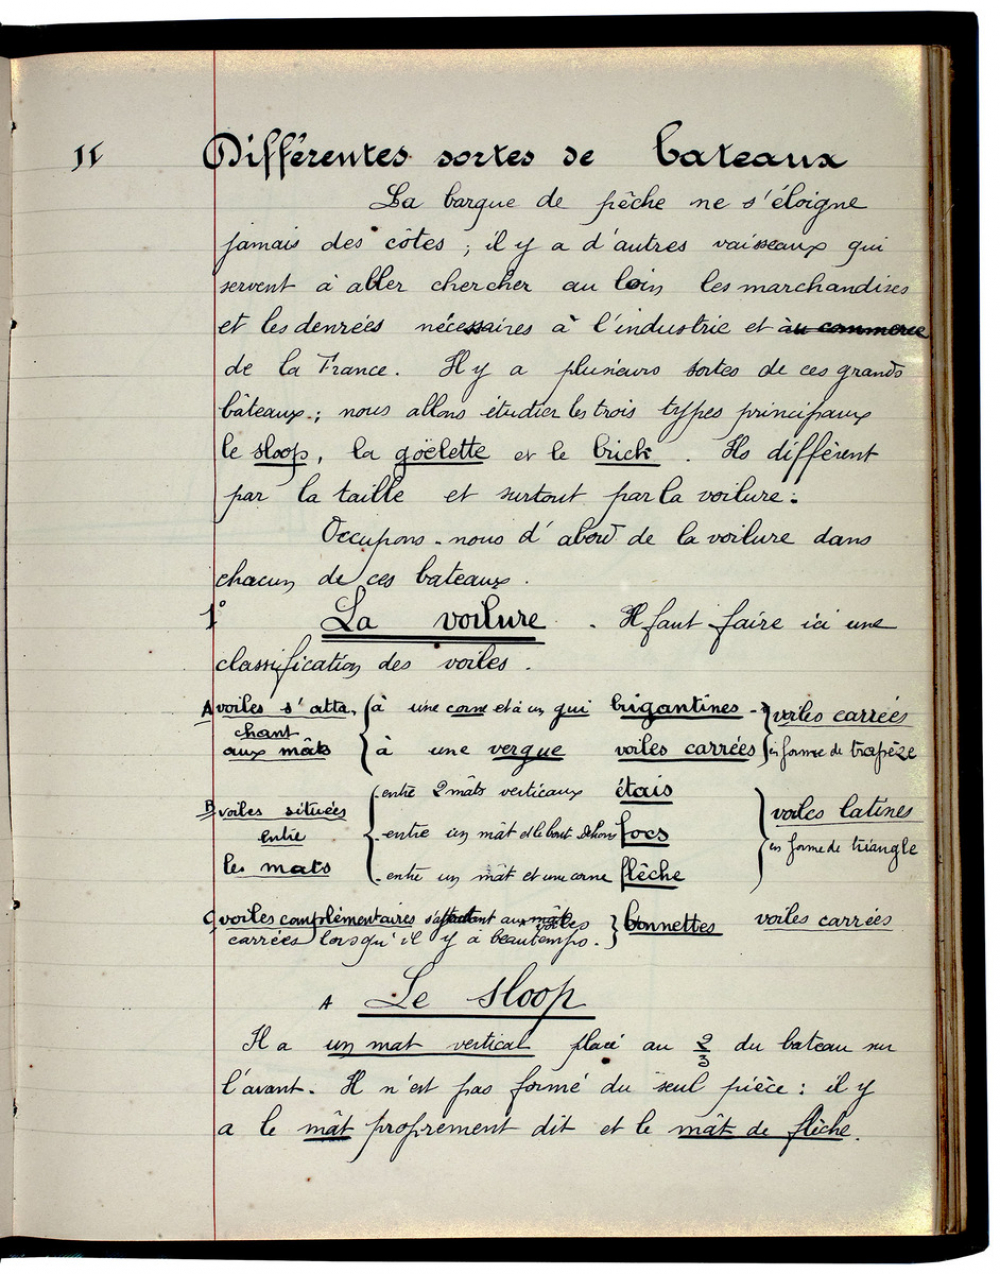 II Différentes sortes de bateaux
La barque de pêche ne s'éloigne
jamais des côtes ; il y a d'autres vaisseaux qui
servent à aller chercher au loin les marchandises
et les denrées nécessaires à l'industrie et au commerce
de la France. Il y a plusieurs sortes de ces grands
bâteaux ; nous allons étudier les trois types principaux
le sloop, la goëlette et le brick. Ils diffèrent
par la taille et surtout par la voilure :
Occupons-nous d'abord de la voilure dans
chacun de ces bateaux.
1° La voilure. Il faut faire ici une
classification des voiles.
A voiles s'atta- { à une corne et à un gui brigantines - } voiles carrées
chant
aux mâts { à une vergue voiles carrées } en forme de trapèze
B voiles situées { entre 2 mâts verticaux étais } voiles latines
entre { entre un mât et le bout dehors focs } en forme de triangle
les mats { entre un mât et une corne flèche
C voiles complémentaires s'attachent aux mâts voiles } bonnettes voiles carrées
carrées lorsqu'il y a beau temps.
A Le sloop
Il a un mat vertical placé au 2/3 du bateau sur
l'avant. Il n'est pas formé du seul pièce : il y
a le mât proprement dit et le mât de flèche.